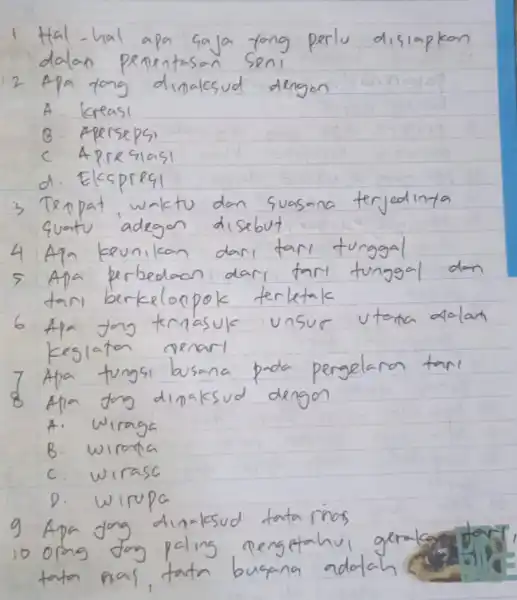 1 Hal-hal apa saja yang perlu disiapkan
dalan pementasan seni
2 Apa yang dimaksud dengan
A kreasi
B. Apersepsi
C Apresiasi
d. Ekspresi
3 Tempat, waktu dan suasana terjedinya
suatu adegan disebut
4 Apa keunikan dari tari tunggal
5 Apa perbedaan dari tari tunggal dan
tari berkelompok terletak
6 Apa yang termasuk unsur utama dalam
kegiatan menari
7 Apa fungsi busana pada pergelaran tari
8 Apa yang dimaksud dengan
A. Wiraga
B. Wirama
C. Wirasa
D. Wirupa
9 Apa yang dimaksud tata rias
10 orang yang paling mengetahui gerakan tari,
tata rias, tata busana adalah